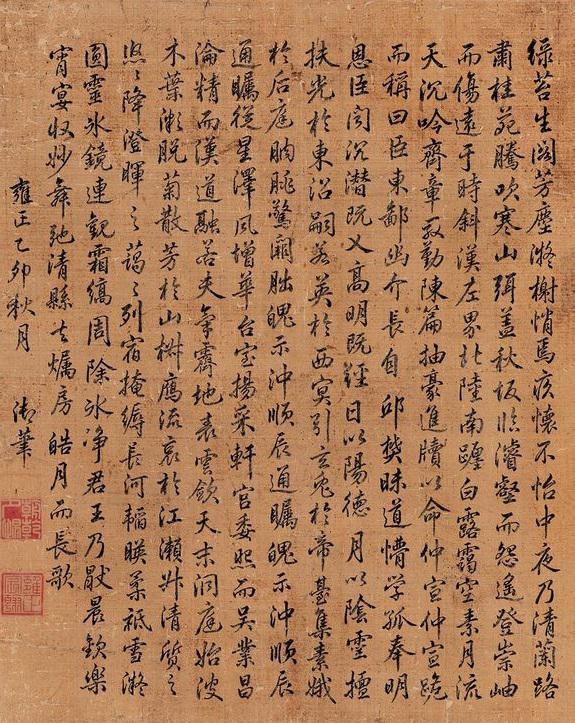 綠苔生閣芳塵凝榭悄焉疚懷不怡中夜乃清蘭路
肅桂苑騰吹寒山弭蓋秋坂臨濬壑而怨遙登崇岫
而傷遠于時斜漢左界北陸南躔白露靄空素月流
天沉吟齊章殷勤陳篇抽豪進牘以命仲宣仲宣跪
而稱曰臣東鄙幽介長自邱樊昧道懵学孤奉明
恩臣聞沉潛既乂高明既經日以陽德月以陰靈擅
扶光於東沼嗣若英於西冥引玄兔於帝臺集素娥
於后庭朒脁驚闕朏魄示沖順辰通矚魄示沖順辰
通矚從星澤風增華台室揚采軒宮委照而吳業昌
淪精而漢道融若夫氣霽地表雲斂天末洞庭始波
木葉漸脫菊散芳於山椒鴈流哀於江瀨升清質之
悠々降澄暉之藹々列宿掩縟長河韜暎柔祇雪凝
圓靈水鏡連觀霜縞周除冰净君王乃厭晨歡樂
宵宴收妙舞弛清縣去燭房皓月而長歌
雍正乙卯秋月 御筆